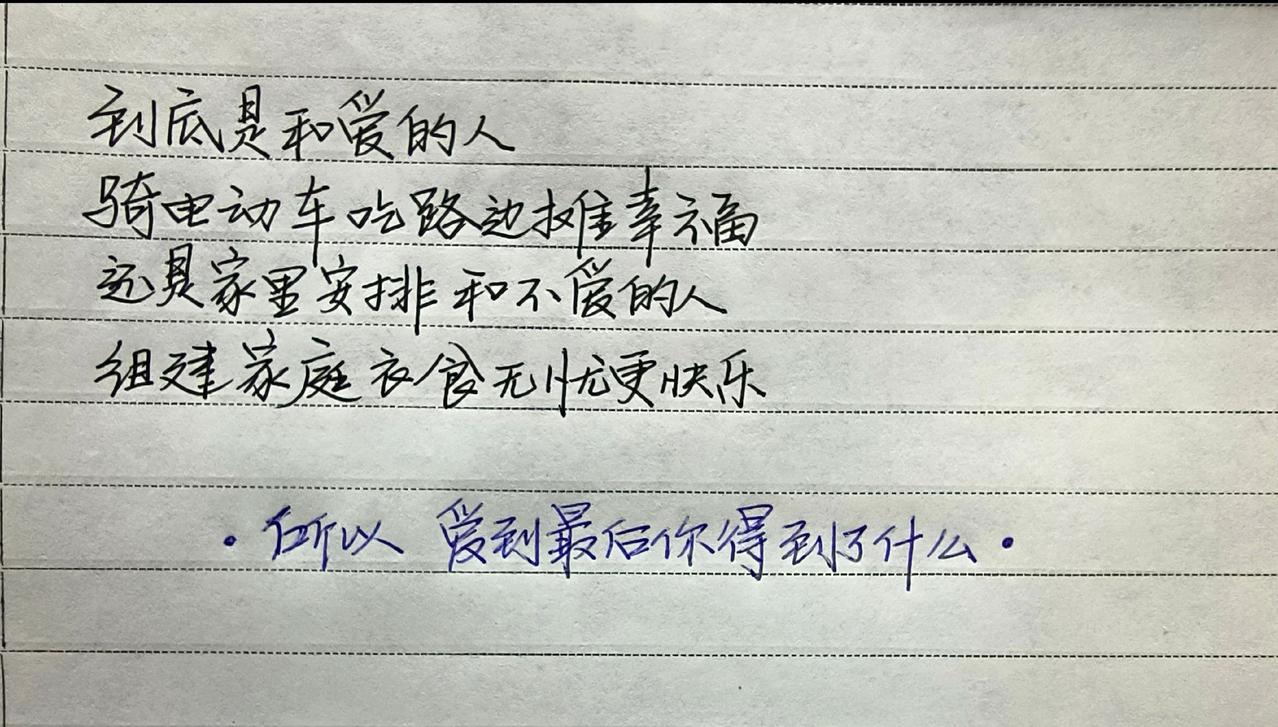 到底是和爱的人
骑电动车吃路边摊幸福
还是家里安排和不爱的人
组建家庭衣食无忧更快乐
·所以 爱到最后你得到了什么·